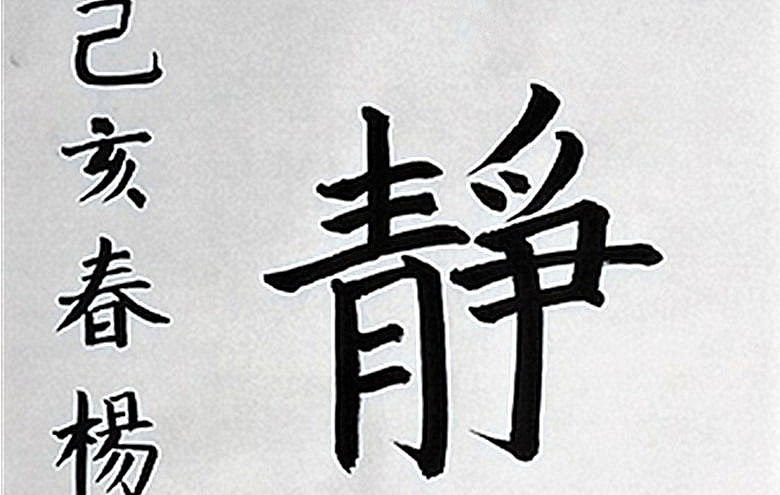 靜
己亥春楊